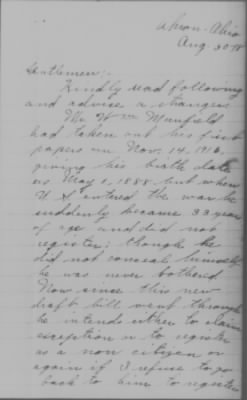 Akron-Ohio
Aug. 30-18
Gentlemen:-
Kindly read following
and advise
Mr. Wm
had taken out his first
papers on Nov. 14, 1916,
giving his birth date
as May 1, 1888, but when
U S entered the war he
suddenly became 33 years
of age and did not
register; though he
did not conceal himself
he was never bothered
Now since this new
draft bill went through
he intends either to claim
exception or to register
as a non citizen or
again if I refuse to go
back to him to register